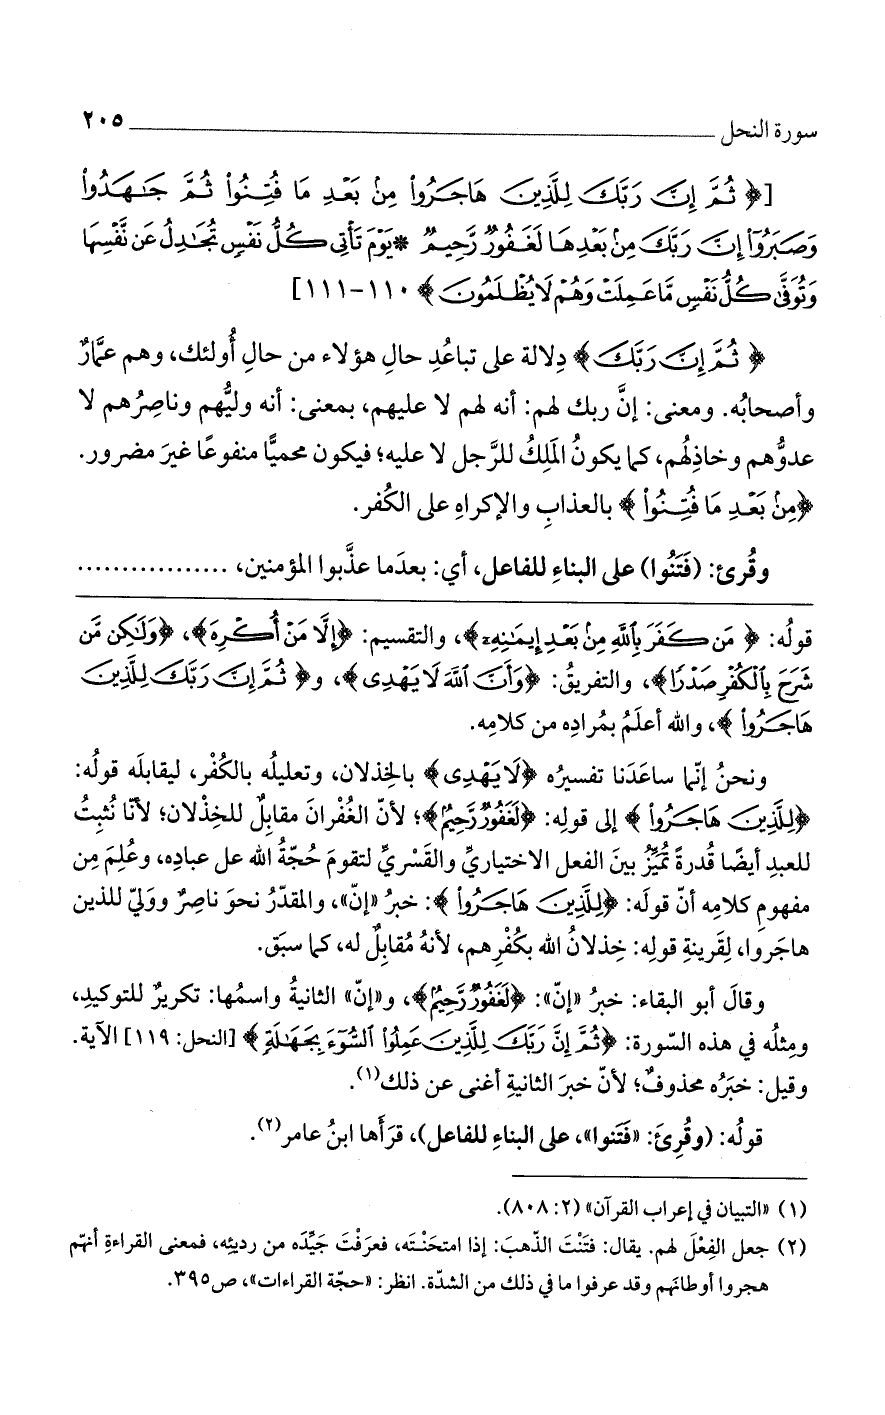 سورة النحل ٢٠٥
[﴿ ثُمَّ إِنَّ رَبَّكَ لِلَّذِينَ هَاجَرُوا مِنْ بَعْدِ مَا فُتِنُوا ثُمَّ جَاهَدُوا
وَصَبَرُوا إِنَّ رَبَّكَ مِنْ بَعْدِهَا لَغَفُورٌ رَّحِيمٌ * يَوْمَ تَأْتِي كُلُّ نَفْسٍ تُجَادِلُ عَن نَّفْسِهَا
وَتُوَفَّى كُلُّ نَفْسٍ مَّا عَمِلَتْ وَهُمْ لَا يُظْلَمُونَ ﴾ ١١٠-١١١]
﴿ ثُمَّ إِنَّ رَبَّكَ ﴾ دِلالة على تباعُدِ حالِ هؤلاء من حالِ أُولئك، وهم عمَّارٌ
وأصحابُه. ومعنى: إنَّ ربك لهم: أنه لهم لا عليهم، بمعنى: أنه وليُّهم وناصِرُهم لا
عدوُّهم وخاذِلُهم، كما يكونُ المَلِكُ للرَّجل لا عليه؛ فيكون محميًّا منفوعًا غيرَ مضرور.
﴿مِنْ بَعْدِ مَا فُتِنُوا ﴾ بالعذابِ والإكراهِ على الكُفر.
وقُرئ: (فَتَنُوا) على البناءِ للفاعل، أي: بعدَما عذَّبوا المؤمنين، .................
قولُه: ﴿ مَن كَفَرَ بِاللَّهِ مِنْ بَعْدِ إِيمَانِهِ ﴾، والتقسيم: ﴿إِلَّا مَنْ أُكْرِهَ﴾، ﴿وَلَكِن مَّن
شَرَحَ بِالْكُفْرِ صَدْرًا﴾، والتفريقُ: ﴿وَأَنَّ اللَّهَ لَا يَهْدِي ﴾، و﴿ ثُمَّ إِنَّ رَبَّكَ لِلَّذِينَ
هَاجَرُوا ﴾، والله أعلَمُ بمُرادِه من كلامِه.
ونحنُ إنّما ساعَدَنا تفسيرُه ﴿لَا يَهْدِي ﴾ بالخِذلان، وتعليلُه بالكُفْر، ليقابلَه قولُه:
﴿لِلَّذِينَ هَاجَرُوا ﴾ إلى قولِه: ﴿لَغَفُورٌ رَّحِيمٌ﴾؛ لأنّ الغُفْرانَ مقابِلٌ للخِذْلان؛ لأنّا نُثبِتُ
للعبدِ أيضًا قُدرةً تُميِّزُ بينَ الفعل الاختياريِّ والقَسْريِّ لتقومَ حُجّةُ الله عل عبادِه، وعُلِمَ مِن
مفهومِ كلامِه أنّ قولَه: ﴿لِلَّذِينَ هَاجَرُوا ﴾: خبرُ «إنّ»، والمقدّرُ نحوَ ناصِرٌ ووَليّ للذين
هاجَروا، لِقَرينةِ قولِه: خِذلانُ الله بكُفْرِهم، لأنهُ مُقابِلٌ له، كما سبَق.
وقالَ أبو البقاء: خبرُ «إنّ»: ﴿لَغَفُورٌ رَّحِيمٌ﴾، و«إنّ» الثانيةُ واسمُها: تكريرٌ للتوكيدِ،
ومِثلُه في هذه السّورة: ﴿ثُمَّ إِنَّ رَبَّكَ لِلَّذِينَ عَمِلُوا السُّوءَ بِجَهَالَةٍ ﴾ [النحل: ١١٩] الآية.
وقيل: خبَرُه محذوفٌ؛ لأنّ خبَرَ الثانيةِ أغنى عن ذلك(١).
قولُه: (وقُرِئَ: «فَتَنوا»، على البناءِ للفاعل)، قرَأَها ابنُ عامر(٢).
(١) «التبيان في إعراب القرآن» (٢: ٨٠٨).
(٢) جعل الفِعْلَ لهم. يقال: فتَنْتَ الذّهبَ: إذا امتحَنْتَه، فعرَفْتَ جيِّدَه من رديئِه، فمعنى القراءةِ أنهّم
هجروا أوطانَهم وقد عرفوا ما في ذلك من الشدّة. انظر: «حجّة القراءات»، ص٣٩٥.